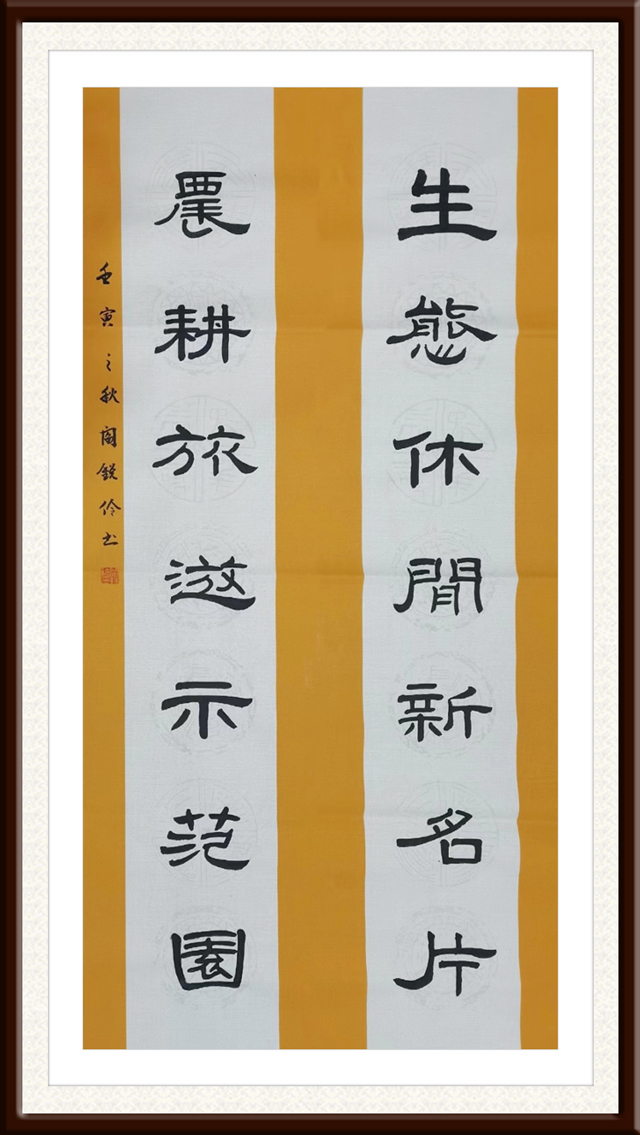 生態休閒新名片
農耕旅遊示范園
壬寅之秋閻銳伶书